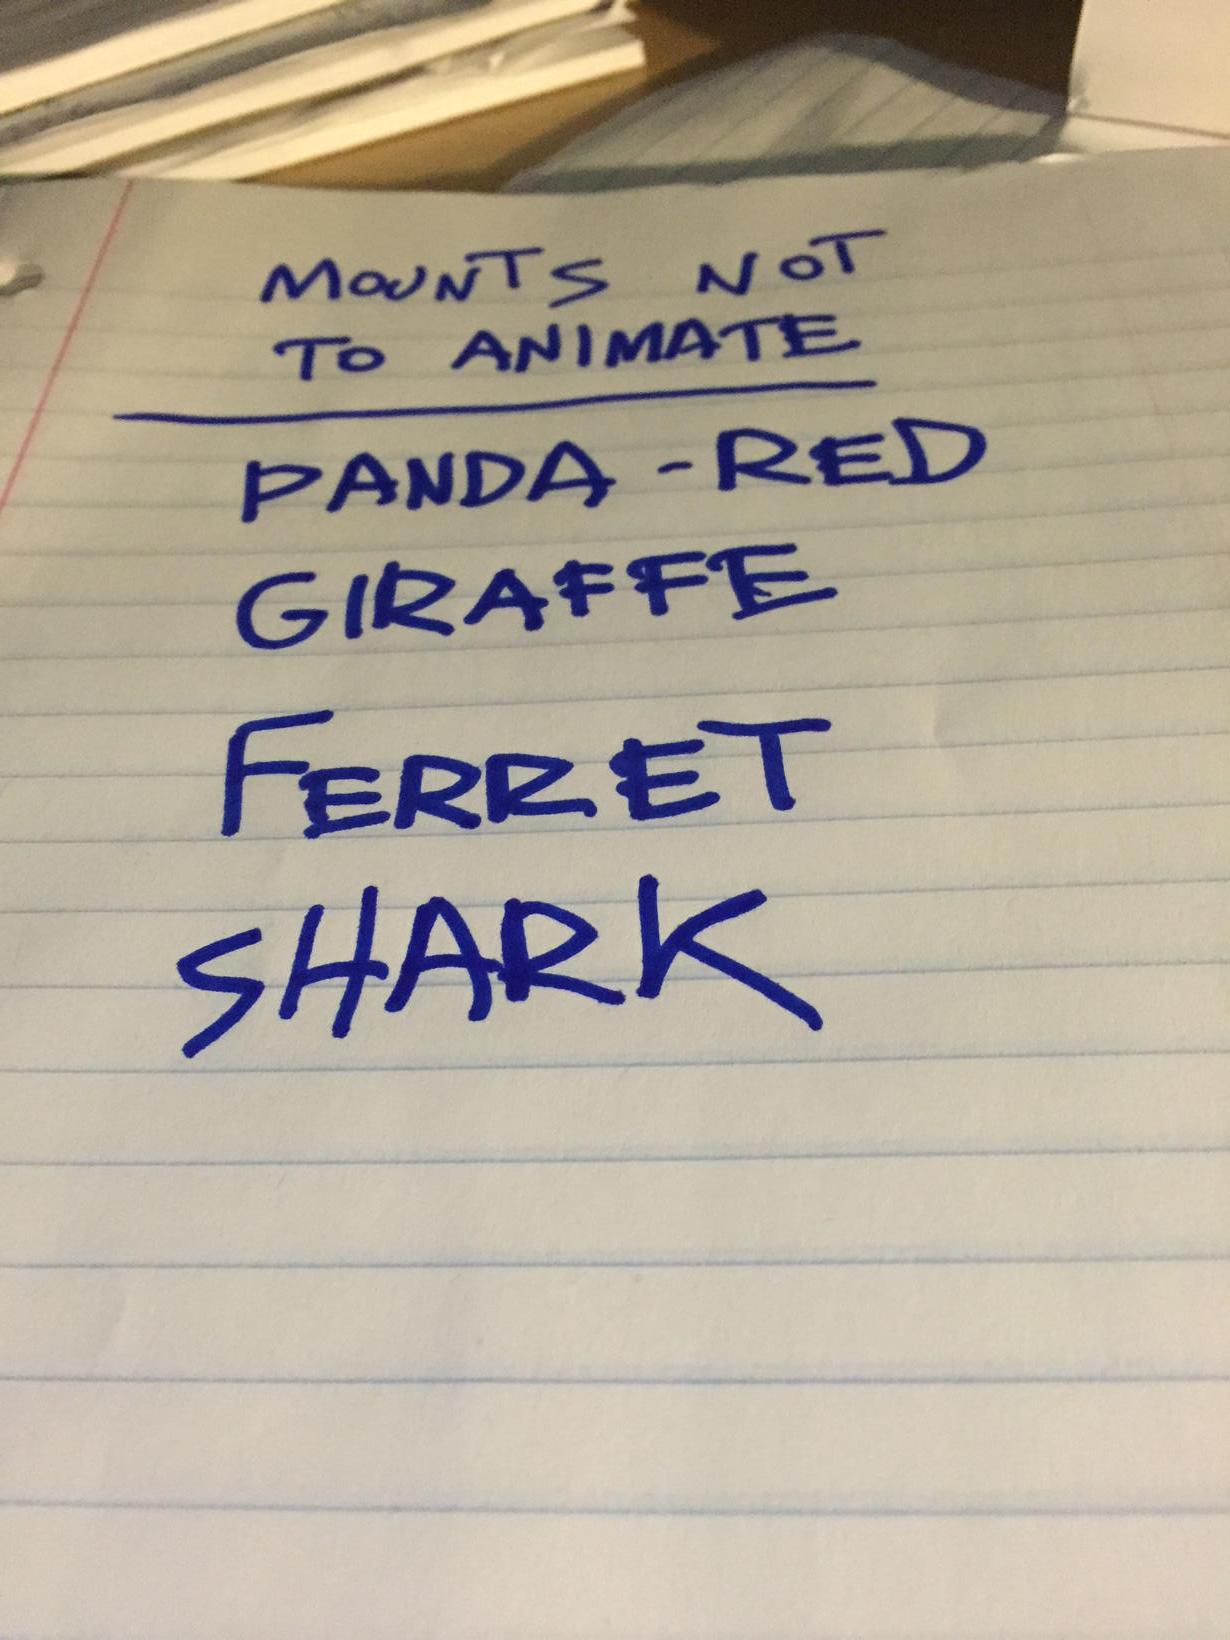 MOUNTS NOT
TO ANIMATE
PANDA - RED
GIRAFFE
FERRET
SHARK